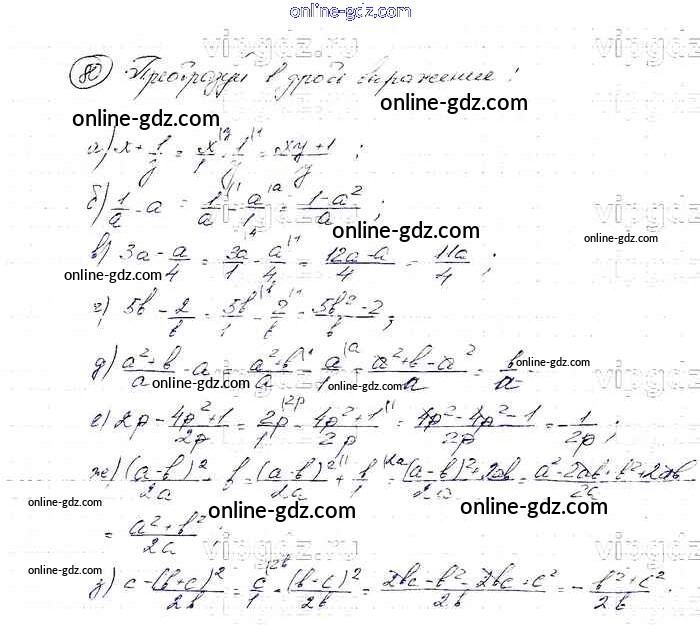 online-gdz.com
80 Преобразуй в дробь выражение:
online-gdz.com online-gdz.com
а) x + 1/y = x/1 + 1/y = xy+1/y ;
б) 1/a - a = 1/a - a/1 = 1-a²/a ;
online-gdz.com online-gdz.com
в) 3a - a/4 = 3a/1 - a/4 = 12a-a/4 = 11a/4 ;
online-gdz.com
г) 5b - 2/b = 5b/1 - 2/b = 5b²-2/b ;
д) a²+b/a - a = a²+b/a - a/1 = a²+b-a²/a = b/a
online-gdz.com online-gdz.com online-gdz.com
е) 2p - 4p²+1/2p = 2p/1 - 4p²+1/2p = 4p²-4p²-1/2p = -1/2p ;
ж) (a-b)²/2a + b = (a-b)²/2a + b/1 = (a-b)²+2ab/2a = a²-2ab+b²+2ab/2a
online-gdz.com online-gdz.com online-gdz.com
= a²+b²/2a ;
online-gdz.com online-gdz.com
з) c - (b+c)²/2b = c/1 - (b+c)²/2b = 2bc-b²-2bc-c²/2b = - b²+c²/2b .
online-gdz.com